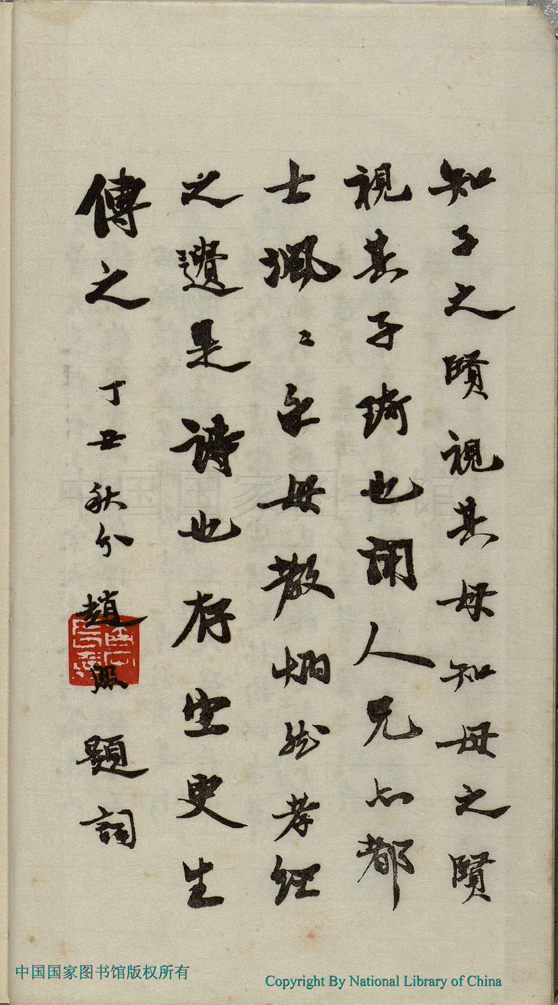 知子之賢視其母知母之賢
視其子琦也閒人兄也都
士渢〻乎母教炯然孝經
之遺是詩也存空更生
傳之 丁丑秋分趙熙題詞
中国国家图书馆
中国国家图书馆版权所有
Copyright By National Library of China